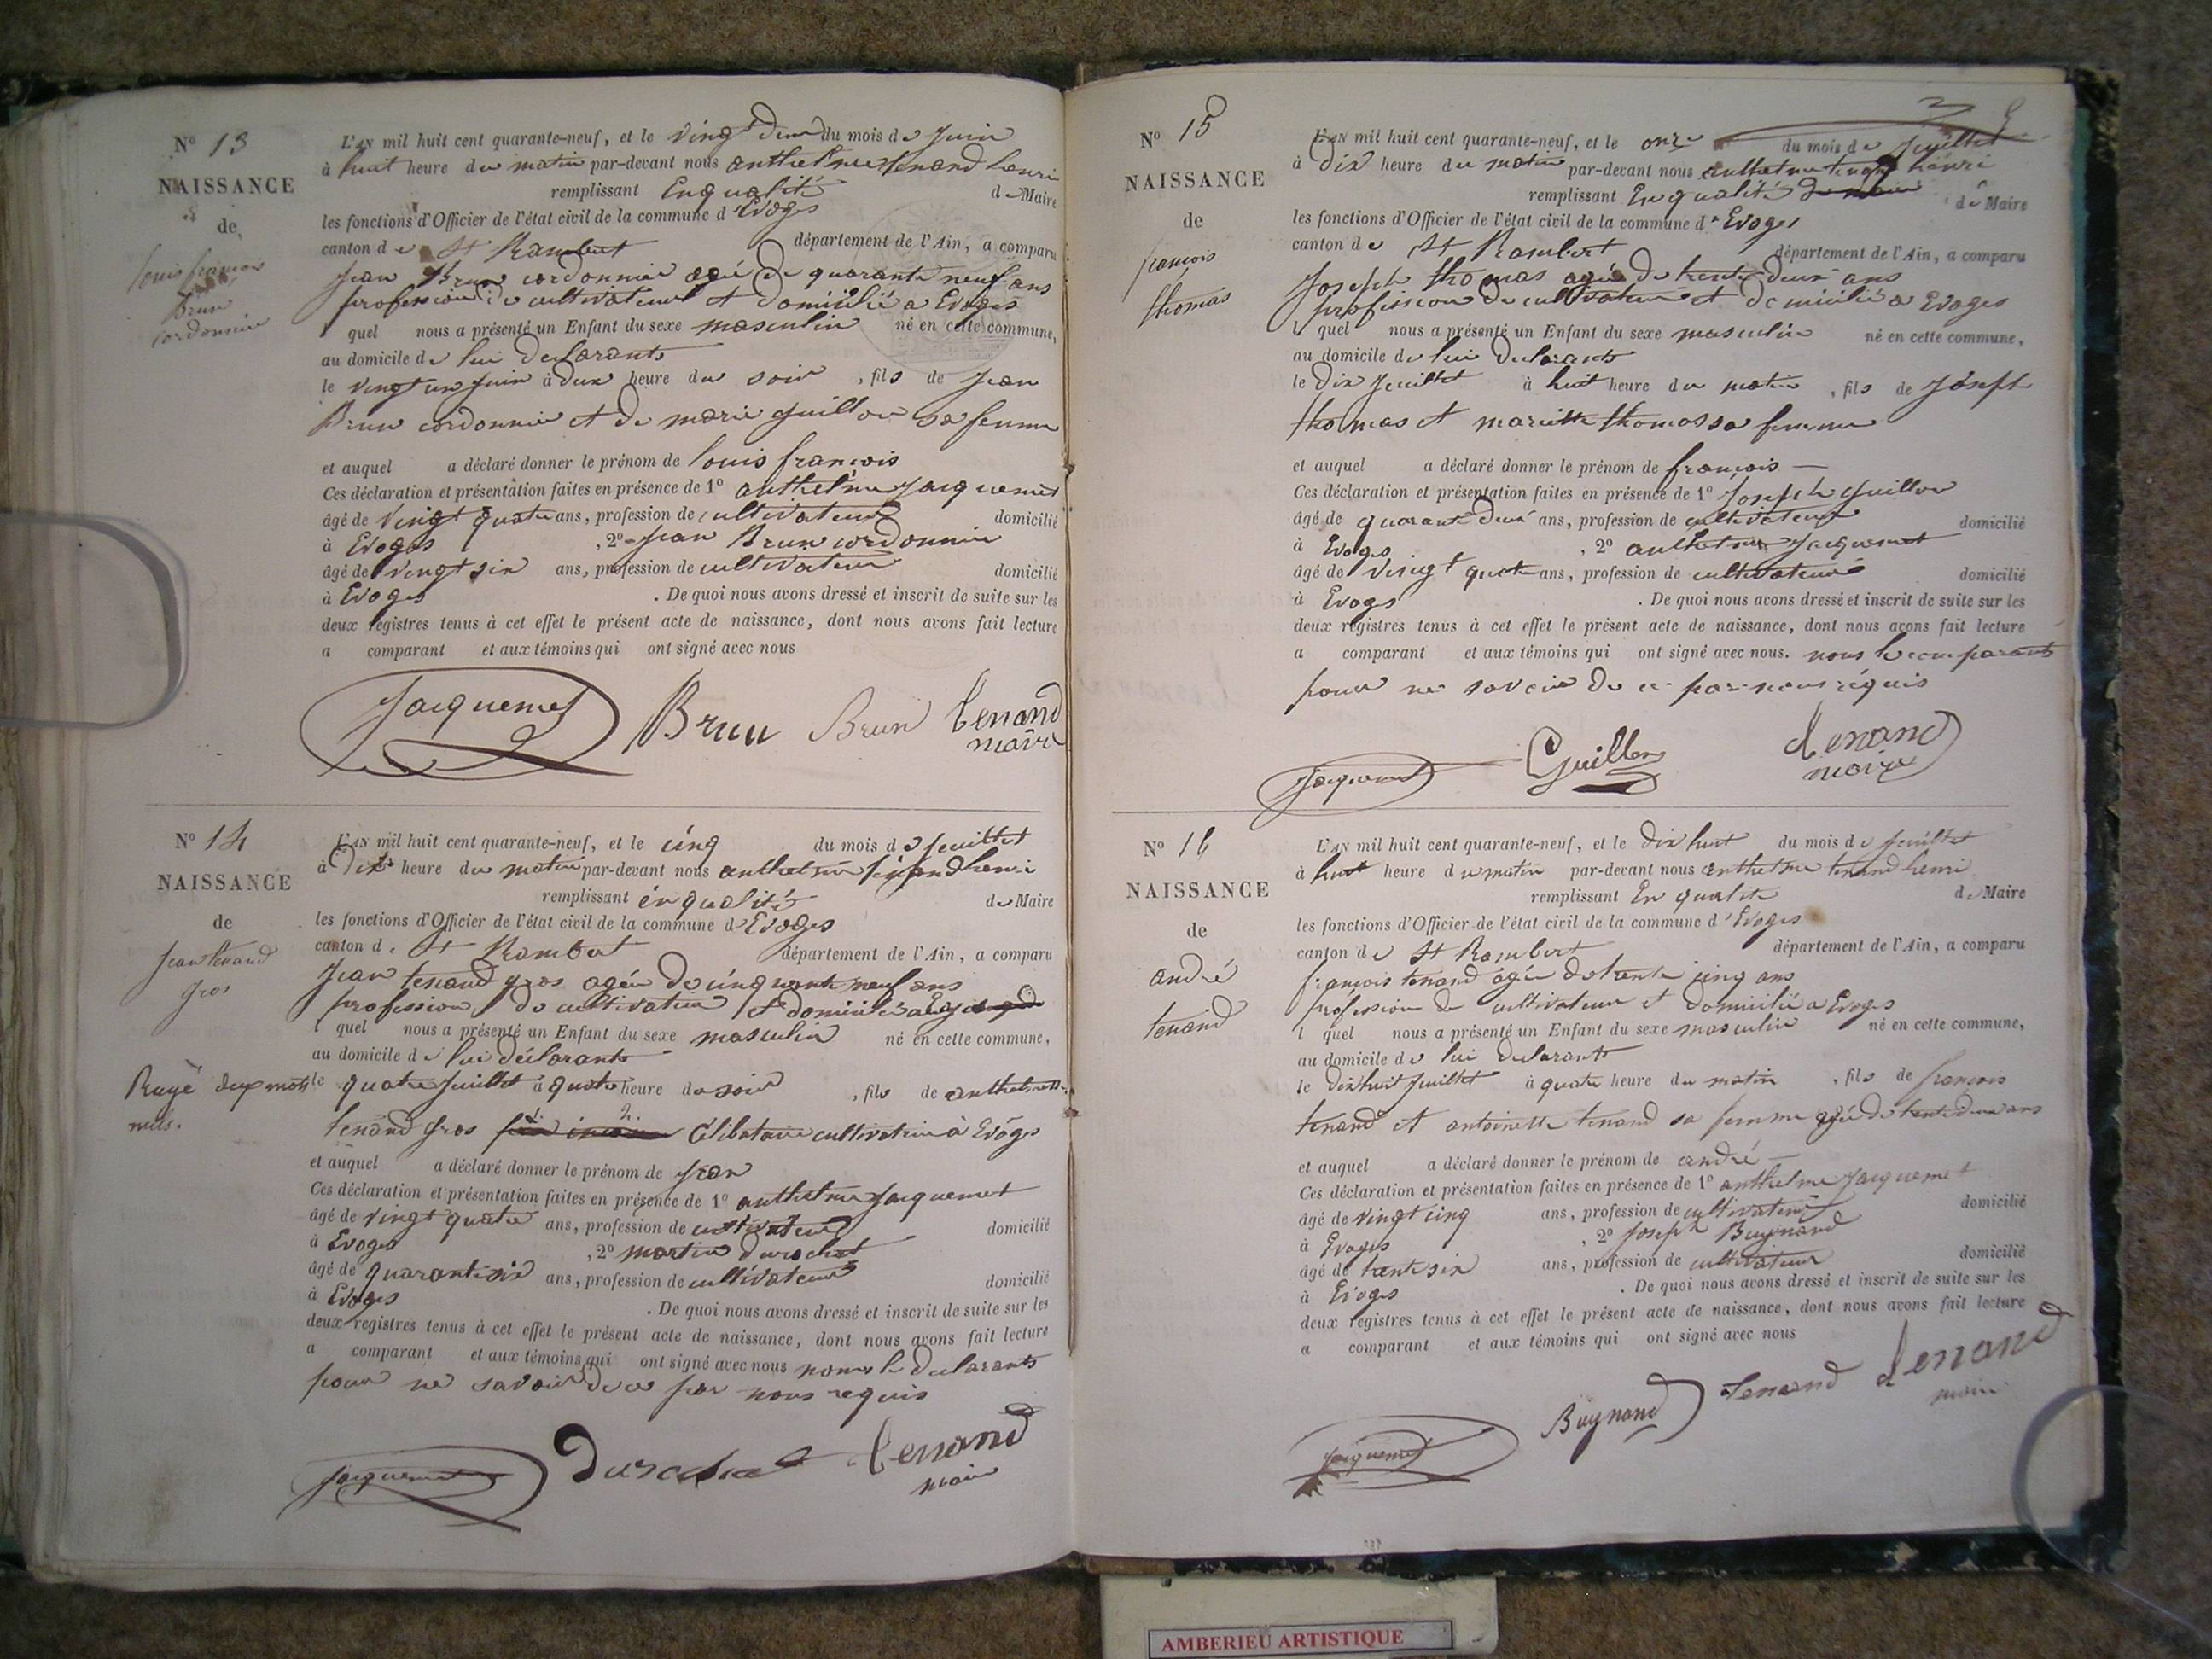 N° 13
NAISSANCE
de
louis françois
Brun
cordonnier
L'AN mil huit cent quarante-neuf, et le vingt deux du mois de Juin
à huit heure du matin par-devant nous anthelme tenand henri
remplissant En qualité de Maire
les fonctions d'Officier de l'état civil de la commune d'Evoges
canton de St Rambert département de l'Ain, a comparu
Jean Brun cordonnier agé de quarante neuf ans
profession de cultivateur et domicilié a Evoges
l quel nous a présenté un Enfant du sexe masculin né en cette commune,
au domicile de lui declarants
le vingt un Juin à deux heure du soir , fils de Jean
Brun cordonnier et de marie guillon sa femme
et auquel a déclaré donner le prénom de louis françois
Ces déclaration et présentation faites en présence de 1° anthelme Jacquemet
âgé de vingt quatre ans, profession de cultivateur domicilié
à Evoges , 2° Jean Brun cordonnier
âgé de vingt six ans, profession de cultivateur domicilié
à Evoges . De quoi nous avons dressé et inscrit de suite sur les
deux registres tenus à cet effet le présent acte de naissance, dont nous avons fait lecture
a comparant et aux témoins qui ont signé avec nous
Jacquemet Brun Brun tenand
maire
N° 14
NAISSANCE
de
Jean tenand
gros
Rayé deux mots
nuls.
L'AN mil huit cent quarante-neuf, et le cinq du mois de Juillet
à Dix heure du matin par-devant nous anthelme tenand henri
remplissant en qualité de Maire
les fonctions d'Officier de l'état civil de la commune d'Evoges
canton de St Rambert département de l'Ain, a comparu
Jean tenand gros agée de cinquante neuf ans
profession de cultivateur et domicilié
l quel nous a présenté un Enfant du sexe masculin né en cette commune,
au domicile de lui déclarants
le quatre Juillet à quatre heure du soir , fils de anthelmette
tenand gros Célibataire cultivatrice à Evoges
et auquel a déclaré donner le prénom de Jean
Ces déclaration et présentation faites en présence de 1° anthelme Jacquemet
âgé de vingt quatre ans, profession de cultivateur domicilié
à Evoges , 2° martin durochat
âgé de quarante six ans, profession de cultivateur domicilié
à Evoges . De quoi nous avons dressé et inscrit de suite sur les
deux registres tenus à cet effet le présent acte de naissance, dont nous avons fait lecture
a comparant et aux témoins qui ont signé avec nous nous le declarants
pour ne savoir de ce par nous requis
Jacquemet Durochat tenand
maire
N° 15
NAISSANCE
de
françois
thomas
L'AN mil huit cent quarante-neuf, et le onze du mois de Juillet
à dix heure du matin par-devant nous anthelme tenand henri
remplissant En qualité de Maire
les fonctions d'Officier de l'état civil de la commune d'Evoges
canton de St Rambert département de l'Ain, a comparu
Joseph thomas agée de trente deux ans
profession de cultivateur et domicilié a Evoges
l quel nous a présenté un Enfant du sexe masculin né en cette commune,
au domicile de lui declarants
le dix Juillet à huit heure du matin , fils de Joseph
thomas et mariette thomas sa femme
et auquel a déclaré donner le prénom de françois
Ces déclaration et présentation faites en présence de 1° Joseph guillon
âgé de quarante deux ans, profession de cultivateur domicilié
à Evoges , 2° anthelme Jacquemet
âgé de vingt quatre ans, profession de cultivateur domicilié
à Evoges . De quoi nous avons dressé et inscrit de suite sur les
deux registres tenus à cet effet le présent acte de naissance, dont nous avons fait lecture
a comparant et aux témoins qui ont signé avec nous. nous le comparants
pour ne savoir de ce par nous réquis
Jacquemet Guillon tenand
maire
N° 16
NAISSANCE
de
andré
tenand
L'AN mil huit cent quarante-neuf, et le dix huit du mois de Juillet
à huit heure du matin par-devant nous anthelme tenand henri
remplissant En qualité de Maire
les fonctions d'Officier de l'état civil de la commune d'Evoges
canton de St Rambert département de l'Ain, a comparu
françois tenand agée de trente cinq ans
profession de cultivateur et domicilié a Evoges
l quel nous a présenté un Enfant du sexe masculin né en cette commune,
au domicile de lui declarants
le dix huit Juillet à quatre heure du matin , fils de françois
tenand et antoinette tenand sa femme agée de trente deux ans
et auquel a déclaré donner le prénom de andré
Ces déclaration et présentation faites en présence de 1° anthelme Jacquemet
âgé de vingt cinq ans, profession de cultivateur domicilié
à Evoges , 2° Joseph Buynand
âgé de trente six ans, profession de cultivateur domicilié
à Evoges . De quoi nous avons dressé et inscrit de suite sur les
deux registres tenus à cet effet le présent acte de naissance, dont nous avons fait lecture
a comparant et aux témoins qui ont signé avec nous
Jacquemet Buynand Tenand tenand
maire
AMBERIEU ARTISTIQUE